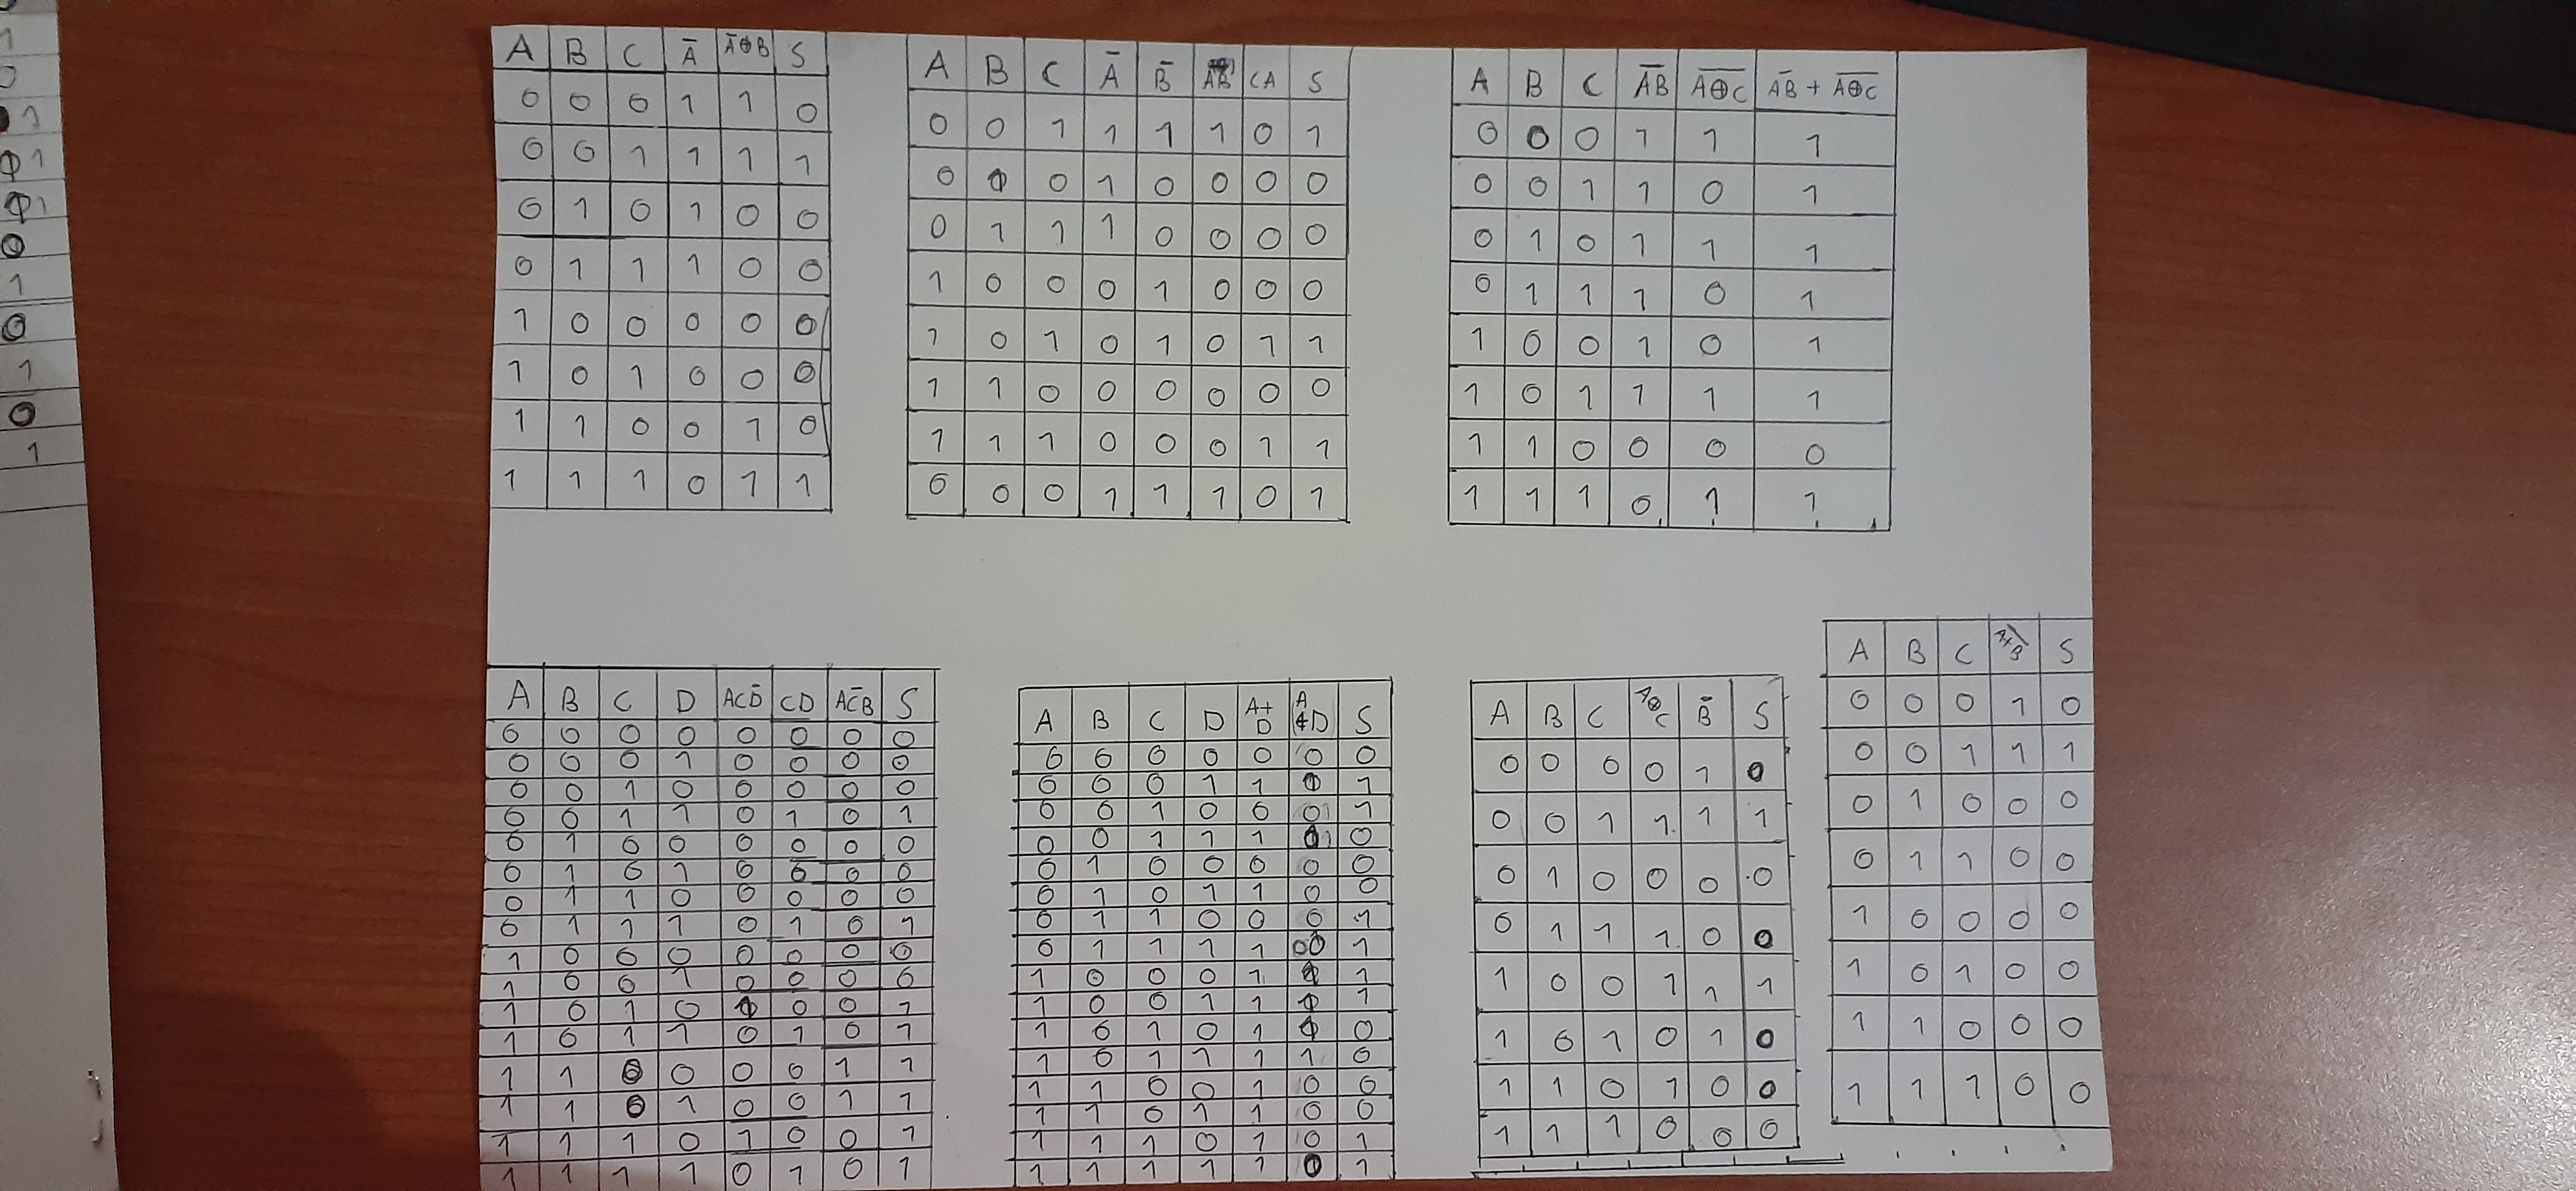 A B C Ā Ā⊕B S
0 0 0 1 1 0
0 0 1 1 1 1
0 1 0 1 0 0
0 1 1 1 0 0
1 0 0 0 0 0
1 0 1 0 0 0
1 1 0 0 1 0
1 1 1 0 1 1
A B C Ā B̄ ĀB̄ CA S
0 0 1 1 1 1 0 1
0 1 0 1 0 0 0 0
0 1 1 1 0 0 0 0
1 0 0 0 1 0 0 0
1 0 1 0 1 0 1 1
1 1 0 0 0 0 0 0
1 1 1 0 0 0 1 1
0 0 0 1 1 1 0 1
A B C A̅B̅ A̅⊕̅C̅ A̅B̅ + A̅⊕̅C̅
0 0 0 1 1 1
0 0 1 1 0 1
0 1 0 1 1 1
0 1 1 1 0 1
1 0 0 1 0 1
1 0 1 1 1 1
1 1 0 0 0 0
1 1 1 0 1 1
A B C D ACD̄ CD AC̄B S
0 0 0 0 0 0 0 0
0 0 0 1 0 0 0 0
0 0 1 0 0 0 0 0
0 0 1 1 0 1 0 1
0 1 0 0 0 0 0 0
0 1 0 1 0 0 0 0
0 1 1 0 0 0 0 0
0 1 1 1 0 1 0 1
1 0 0 0 0 0 0 0
1 0 0 1 0 0 0 0
1 0 1 0 1 0 0 1
1 0 1 1 0 1 0 1
1 1 0 0 0 0 1 1
1 1 0 1 0 0 1 1
1 1 1 0 1 0 0 1
1 1 1 1 0 1 0 1
A B C D A+D S
0 0 0 0 0 0
0 0 0 1 1 1
0 0 1 0 0 1
0 0 1 1 1 0
0 1 0 0 0 0
0 1 0 1 1 0
0 1 1 0 0 1
0 1 1 1 1 1
1 0 0 0 1 1
1 0 0 1 1 1
1 0 1 0 1 0
1 0 1 1 1 0
1 1 0 0 1 0
1 1 0 1 1 0
1 1 1 0 1 1
1 1 1 1 1 1
A B C A⊕C B̄ S
0 0 0 0 1 0
0 0 1 1 1 1
0 1 0 0 0 0
0 1 1 1 0 0
1 0 0 1 1 1
1 0 1 0 1 0
1 1 0 1 0 0
1 1 1 0 0 0
A B C S
0 0 0 1 0
0 0 1 1 1
0 1 0 0 0
0 1 1 0 0
1 0 0 0 0
1 0 1 0 0
1 1 0 0 0
1 1 1 0 0